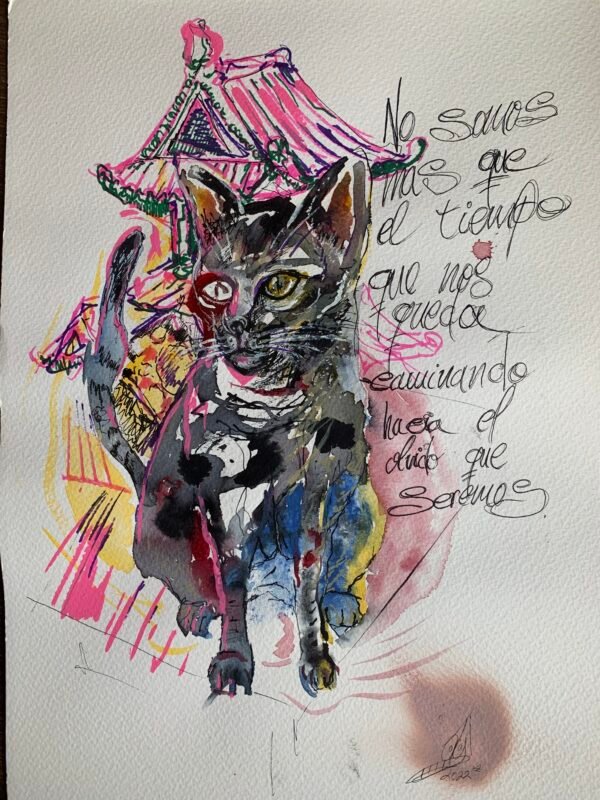 No somos
más que
el tiempo
que nos
queda
caminando
hacia el
olvido que
seremos.
2022